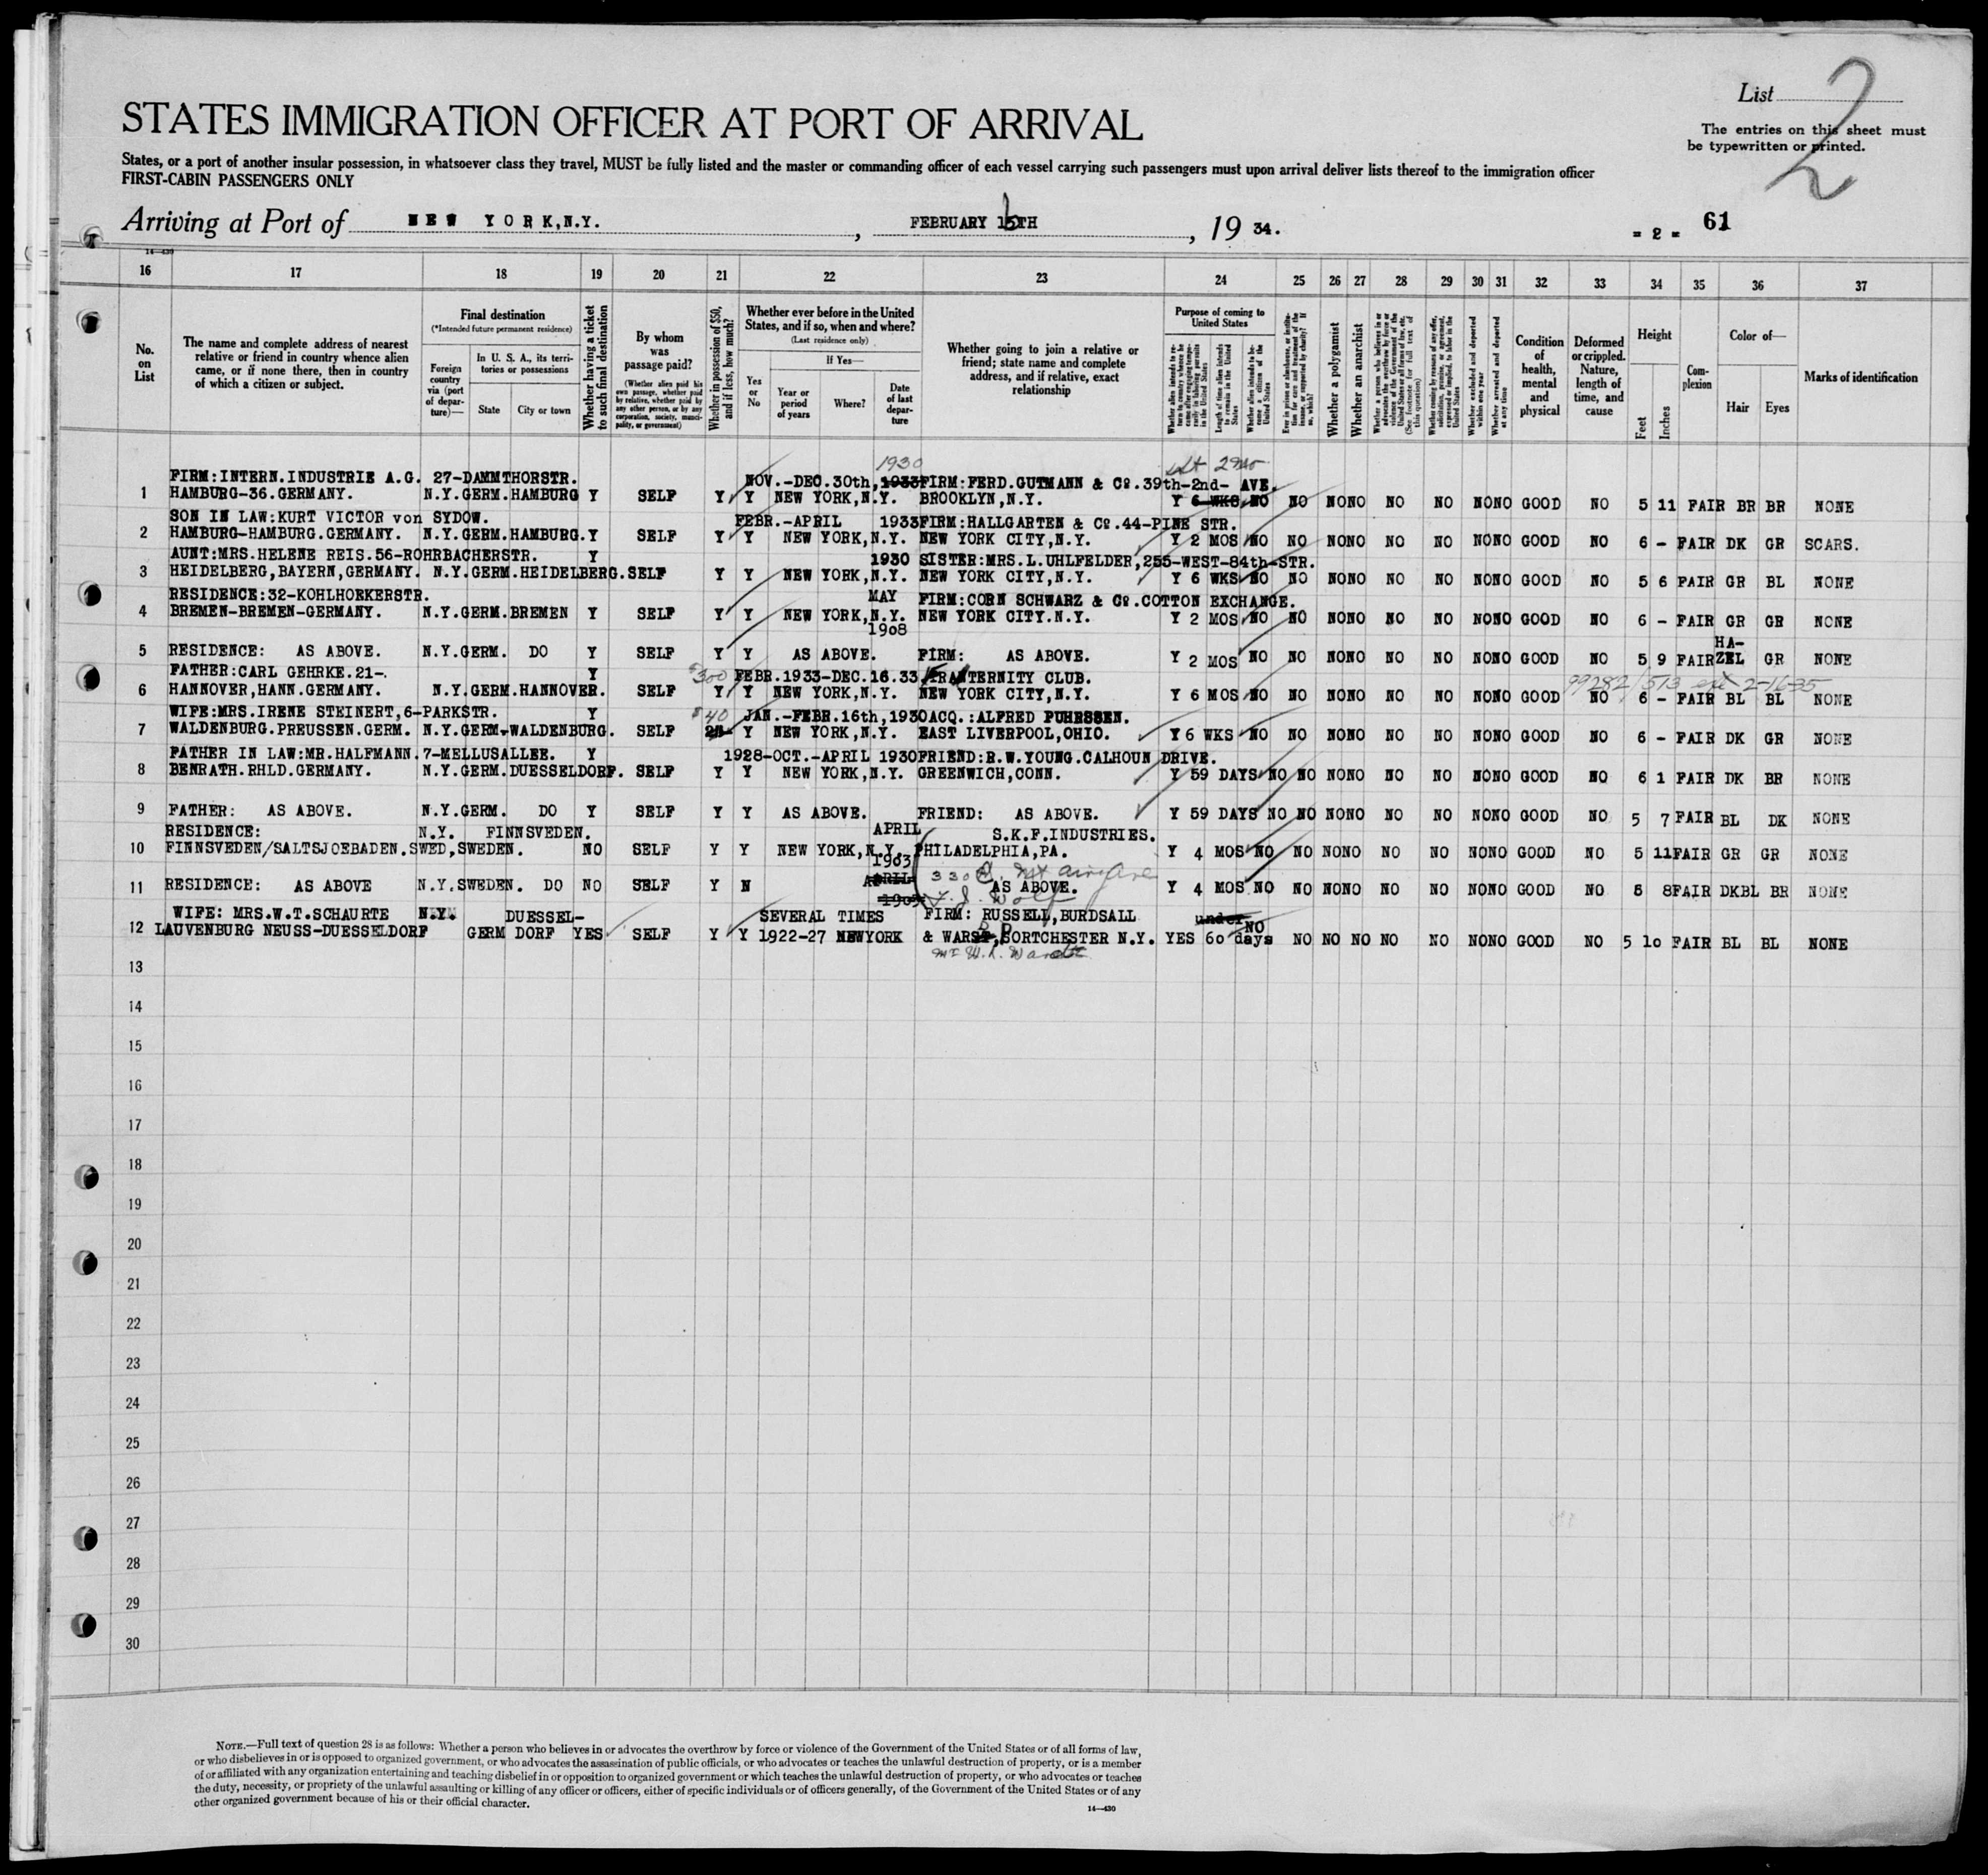 List 2
STATES IMMIGRATION OFFICER AT PORT OF ARRIVAL
The entries on this sheet must
be typewritten or printed.
States, or a port of another insular possession, in whatsoever class they travel, MUST be fully listed and the master or commanding officer of each vessel carrying such passengers must upon arrival deliver lists thereof to the immigration officer
FIRST-CABIN PASSENGERS ONLY
Arriving at Port of NEW YORK,N.Y. , FEBRUARY 16TH , 19 34.
= 2 = 61
14—430
16 17 18 19 20 21 22 23 24 25 26 27 28 29 30 31 32 33 34 35 36 37
No. on List
The name and complete address of nearest relative or friend in country whence alien came, or if none there, then in country of which a citizen or subject.
Final destination
(*Intended future permanent residence)
Foreign country via (port of departure)—
In U. S. A., its territories or possessions
State
City or town
Whether having a ticket to such final destination
By whom was passage paid?
(Whether alien paid his own passage, whether paid by relative, whether paid by any other person, or by any corporation, society, municipality, or government)
Whether in possession of $50, and if less, how much?
Whether ever before in the United States, and if so, when and where?
(Last residence only)
Yes or No
If Yes—
Year or period of years
Where?
Date of last departure
Whether going to join a relative or friend; state name and complete address, and if relative, exact relationship
Purpose of coming to United States
Length of time alien intends to remain in the United States
Whether alien intends to become a citizen of the United States
Whether a polygamist
Whether an anarchist
Whether excluded and deported within one year
Whether arrested and deported at any time
Condition of health, mental and physical
Deformed or crippled. Nature, length of time, and cause
Height
Feet
Inches
Complexion
Color of—
Hair
Eyes
Marks of identification
1930
FIRM:INTERN.INDUSTRIE A.G. 27-DAMMTHORSTR. NOV.-DEC.30th,1933 FIRM:FERD.GUTMANN & Co.39th-2nd- AVE.
1 HAMBURG-36.GERMANY. N.Y.GERM.HAMBURG Y SELF Y Y NEW YORK,N.Y. BROOKLYN,N.Y. Y 6 WKS NO NO NONO NO NO NONO GOOD NO 5 11 FAIR BR BR NONE
SON IN LAW:KURT VICTOR von SYDOW. FEBR.-APRIL 1933 FIRM:HALLGARTEN & Co.44-PINE STR.
2 HAMBURG-HAMBURG.GERMANY. N.Y.GERM.HAMBURG. Y SELF Y Y NEW YORK,N.Y. NEW YORK CITY,N.Y. Y 2 MOS NO NO NONO NO NO NONO GOOD NO 6 - FAIR DK GR SCARS.
AUNT:MRS.HELENE REIS.56-ROHRBACHERSTR. Y 1930 SISTER:MRS.L.UHLFELDER,255-WEST-84th-STR.
3 HEIDELBERG,BAYERN,GERMANY. N.Y.GERM.HEIDELBERG. SELF Y Y NEW YORK,N.Y. NEW YORK CITY,N.Y. Y 6 WKS NO NO NONO NO NO NONO GOOD NO 5 6 FAIR GR BL NONE
RESIDENCE:32-KOHLHORKERSTR. MAY FIRM:CORN SCHWARZ & Co.COTTON EXCHANGE.
4 BREMEN-BREMEN-GERMANY. N.Y.GERM.BREMEN Y SELF Y Y NEW YORK,N.Y. NEW YORK CITY.N.Y. Y 2 MOS NO NO NONO NO NO NONO GOOD NO 6 - FAIR GR GR NONE
1908
HA-
5 RESIDENCE: AS ABOVE. N.Y.GERM. DO Y SELF Y Y AS ABOVE. FIRM: AS ABOVE. Y 2 MOS NO NO NONO NO NO NONO GOOD NO 5 9 FAIR ZEL GR NONE
FATHER:CARL GEHRKE.21-. Y $300 FEBR.1933-DEC.16.33 FRATERNITY CLUB. 99282/513 2-16-35
6 HANNOVER,HANN.GERMANY. N.Y.GERM.HANNOVER. SELF Y Y NEW YORK,N.Y. NEW YORK CITY,N.Y. Y 6 MOS NO NO NONO NO NO NONO GOOD NO 6 - FAIR BL BL NONE
WIFE:MRS.IRENE STEINERT,6-PARKSTR. Y $40 JAN.-FEBR.16th,1930 ACQ.:ALFRED PUHRSSEN.
7 WALDENBURG.PREUSSEN.GERM. N.Y.GERM-WALDENBURG. SELF Y NEW YORK,N.Y. EAST LIVERPOOL,OHIO. Y 6 WKS NO NO NONO NO NO NONO GOOD NO 6 - FAIR DK GR NONE
FATHER IN LAW:MR.HALFMANN.7-MELLUSALLEE. Y 1928-OCT.-APRIL 1930 FRIEND:R.W.YOUNG.CALHOUN DRIVE.
8 BENRATH.RHLD.GERMANY. N.Y.GERM.DUESSELDORF. SELF Y Y NEW YORK,N.Y. GREENWICH,CONN. Y 59 DAYS NO NO NONO NO NO NONO GOOD NO 6 1 FAIR DK BR NONE
9 FATHER: AS ABOVE. N.Y.GERM. DO Y SELF Y Y AS ABOVE. FRIEND: AS ABOVE. Y 59 DAYS NO NO NONO NO NO NONO GOOD NO 5 7 FAIR BL DK NONE
RESIDENCE: N.Y. FINNSVEDEN. APRIL S.K.F.INDUSTRIES.
10 FINNSVEDEN/SALTSJOEBADEN.SWED,SWEDEN. NO SELF Y Y NEW YORK,N.Y. PHILADELPHIA,PA. Y 4 MOS NO NO NONO NO NO NONO GOOD NO 5 11 FAIR GR GR NONE
1903 330 E. Mt Airy Ave
11 RESIDENCE: AS ABOVE N.Y.SWEDEN. DO NO SELF Y N APRIL AS ABOVE. Y 4 MOS NO NO NONO NO NO NONO GOOD NO 5 8 FAIR DKBL BR NONE
1903 Wolf
WIFE: MRS.W.T.SCHAURTE N.Y. DUESSEL- SEVERAL TIMES FIRM: RUSSELL,BURDSALL under NO
12 LAUVENBURG NEUSS-DUESSELDORF GERM DORF YES SELF Y Y 1922-27 NEWYORK & WARD, PORTCHESTER N.Y. YES 60 days NO NO NO NO NO NONO GOOD NO 5 10 FAIR BL BL NONE
Mr W. L. Ward
13
14
15
16
17
18
19
20
21
22
23
24
25
26
27
28
29
30
NOTE.—Full text of question 28 is as follows: Whether a person who believes in or advocates the overthrow by force or violence of the Government of the United States or of all forms of law,
or who disbelieves in or is opposed to organized government, or who advocates the assassination of public officials, or who advocates or teaches the unlawful destruction of property, or is a member
of or affiliated with any organization entertaining and teaching disbelief in or opposition to organized government or which teaches the unlawful destruction of property, or who advocates or teaches
the duty, necessity, or propriety of the unlawful assaulting or killing of any officer or officers, either of specific individuals or of officers generally, of the Government of the United States or of any
other organized government because of his or their official character.
14—430